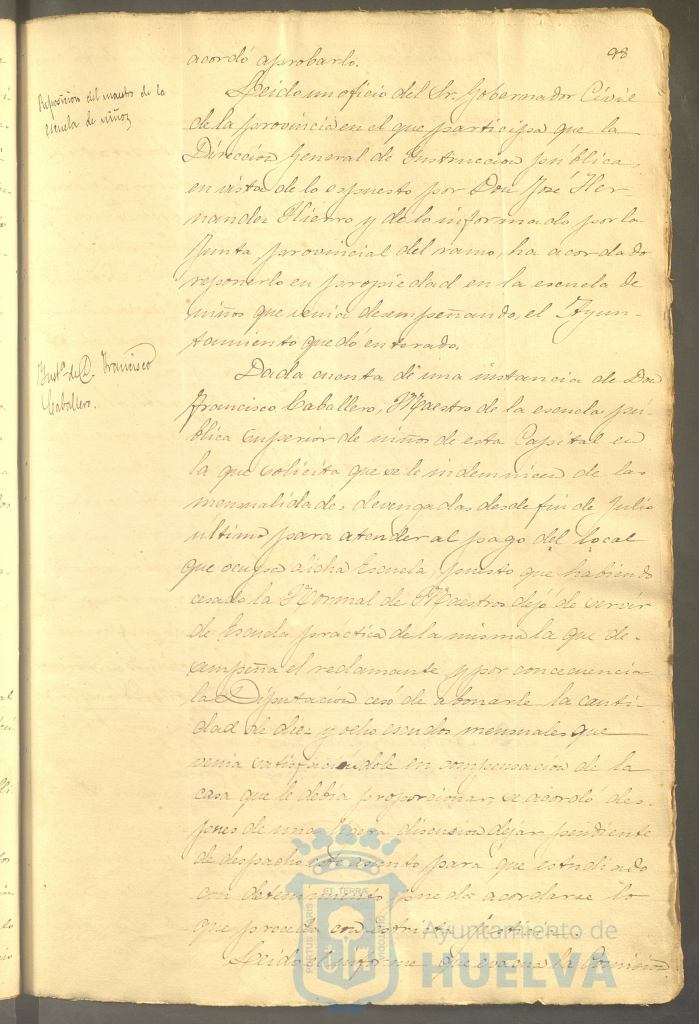 98
acordó aprobarlo.
Reposicion del maestro de la
escuela de niños
Leido un oficio del Sr. Gobernador Civil
de la provincia en el que participa que la
Direccion General de Instruccion publica,
en vista de lo espuesto por Don José Her-
nandez Hierro y de lo informado por la
Junta provincial del ramo, ha acordado
reponerlo en propiedad en la escuela de
niños que venia desempeñando, el Ayun-
tamiento quedó enterado.
Inst.ª de D. Francisco
Caballero.
Dada cuenta de una instancia de Don
Francisco Caballero, Maestro de la escuela pú-
blica superior de niños de esta Capital en
la que solicita que se le indemnicen de las
mensualidades devengadas desde fin de Julio
ultimo para atender al pago del local
que ocupa dicha Escuela, puesto que habiendo
cesado la Normal de Maestros dejó de servir
de Escuela práctica de la misma la que de-
sempeña el reclamante y por concecuencia
la Diputacion cesó de abonarle la canti-
dad de diez y ocho escudos mensuales que
venia satisfaciendole en compensacion de la
casa que le debia proporcionar, se acordó des-
pues de una ligera discusion dejar pendiente
de despacho este asunto para que estudiado
con detenimiento pueda acordarse lo
que proceda con estricta justicia.
Leido el informe que evacua la Comision
PORTUS MARIS ET TERRÆ CUSTODIA
Ayuntamiento de
HUELVA